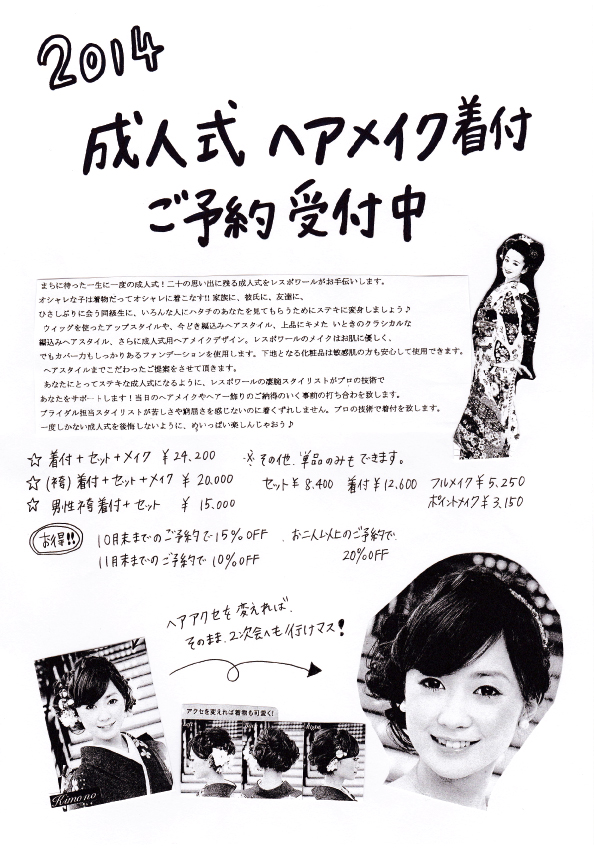 2014
成人式 ヘアメイク着付
ご予約 受付中
まちに待った一生に一度の成人式！二十の思い出に残る成人式をレスポワールがお手伝いします。
オシャレな子は着物だってオシャレに着こなす!! 家族に、彼氏に、友達に、
ひさしぶりに会う同級生に、いろんな人にハタチのあなたを見てもらうためにステキに変身しましょう♪
ウィッグを使ったアップスタイルや、今どき編込みヘアスタイル、上品にキメた いときのクラシカルな
編込みヘアスタイル、さらに成人式用ヘアメイクデザイン。レスポワールのメイクはお肌に優しく、
でもカバー力もしっかりあるファンデーションを使用します。下地となる化粧品は敏感肌の方も安心して使用できます。
ヘアスタイルまでこだわったご提案をさせて頂きます。
あなたにとってステキな成人式になるように、レスポワールの凄腕スタイリストがプロの技術で
あなたをサポートします！当日のヘアメイクやヘアー飾りのご納得のいく事前の打ち合わを致します。
ブライダル担当スタイリストが苦しさや窮屈さを感じないのに着くずれしません。プロの技術で着付を致します。
一度しかない成人式を後悔しないように、めいっぱい楽しんじゃおう♪
☆ 着付+セット+メイク ¥24,200 ※その他、単品のみもできます。
☆ (袴)着付+セット+メイク ¥ 20,000 セット¥8,400 着付¥12,600 フルメイク¥5,250
☆ 男性袴着付+セット ¥ 15,000 ポイントメイク¥3,150
お得!! 10月末までのご予約で15%OFF お二人以上のご予約で
11月末までのご予約で10%OFF 20%OFF
ヘアアクセを変えれば、
そのまま、2次会へも行けマス！
アクセを変えれば着物も可愛く！
Kimono